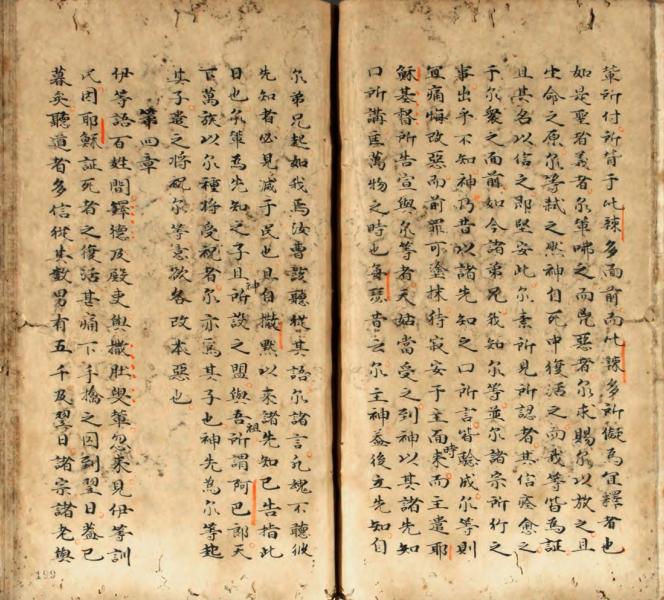 軰所付所背于比辣多面前而比辣多所儗為宜釋者也
如是聖者義者尔軰咈之而凶惡者尔求賜尔以放之且
生命之原尔等弒之然神自死中復活之而我等皆為証
且其名以信之即堅安此尔素所見所認者其信痊愈之
于尔衆之面前如今諸弟兄我知尔等並尔諸宗所行之
事出乎不知神乃昔以諸先知之口所言皆驗成尔等則
宜痛悔改惡而前罪可塗抹待寂安于主面時來而主遣耶
穌基督所告宣與尔等者天姑當受之到神以其諸先知
口所講匡萬物之時也每瑟昔云尔主神益後立先知自
尔弟兄起如我焉汝曹該聽從其語尔諸言凢魂不聽彼
先知者必見滅于民也且自撒默以來諸先知已告指此
日也尔軰為先知之子且神所設之盟與吾祖所謂阿巴郎天
下萬族以尔種將受祝者尔亦為其子也神先為尔等起
其子遣之將祝尔等意欲各改本惡也
第四章
伊等語百姓間鐸德及殿吏與撒肚輿軰忽來見伊等訓
民因耶穌証死者之復活甚痛下手擒之囚到翌日葢已
暮矣聽道者多信從其數男有五千及翌日諸宗諸老與
199